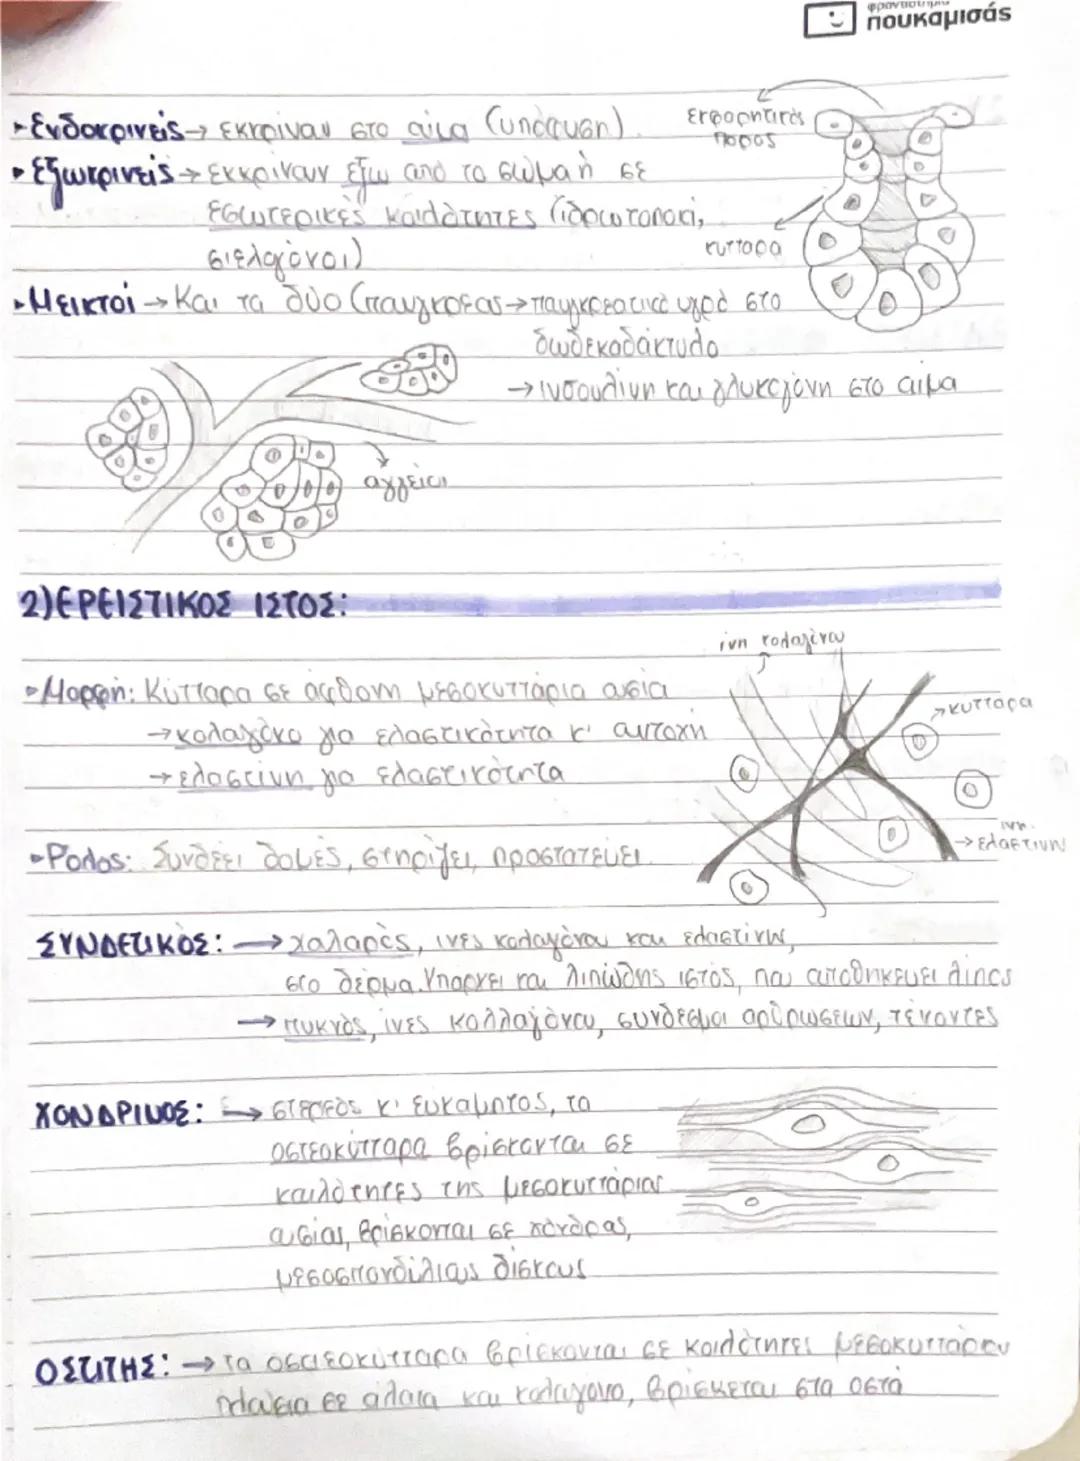 φροντιστήρια
πουκαμισάς
▸Ενδοκρινείς→ εκκρίνουν στο αίμα (υπόφυση)
εκφορητικός
πόρος
▸Εξωκρινείς→ εκκρίνουν έξω από το σώμα ή σε
εσωτερικές κοιλότητες (ιδρωτοποιοί,
σιελογόνοι)
κυτταρα
▸Μεικτοί→ Και τα δύο (παγκρεας→παγκρεατικό υγρό στο
δωδεκαδάκτυλο
→ινσουλίνη και γλυκαγόνη στο αιμα
αγγείο
2)ΕΡΕΙΣΤΙΚΟΣ ΙΣΤΟΣ:
ίνη κολαγόνου
▸Μορφή: Κύτταρα σε άφθονη μεσοκυττάρια ουσία
→κολαγόνο για ελαστικότητα κ' αντοχή
→κυτταρα
→ελαστίνη για ελαστικότητα
ινη
→ελαστινης
▸Ρόλος: Συνδέει δομές, στηρίζει, προστατεύει
ΣΥΝΔΕΤΙΚΟΣ: → χαλαρός, ινες κολαγόνου και ελαστίνης,
στο δέρμα. Υπαρχει και λιπώδης ιστός, που αποθηκευει λίπος
→ πυκνός, ίνες κολλαγόνου, συνδεσμοι αρθρωσεων, τένοντες
ΧΟΝΔΡΙΝΟΣ: → στερεός κ' ευκαμπτος, τα
οστεοκύτταρα βρίσκονται σε
κοιλότητες της μεσοκυττάριας
ουσίας, βρίσκονται σε χόνδρους,
μεσοσπονδύλιους δίσκους
ΟΣΤΙΤΗΣ: → τα οστεοκύτταρα βρίσκονται σε κοιλότητες μεσοκυττάρου
πλουσια σε άλατα και κολαγόνο, βρίσκεται στα οστά